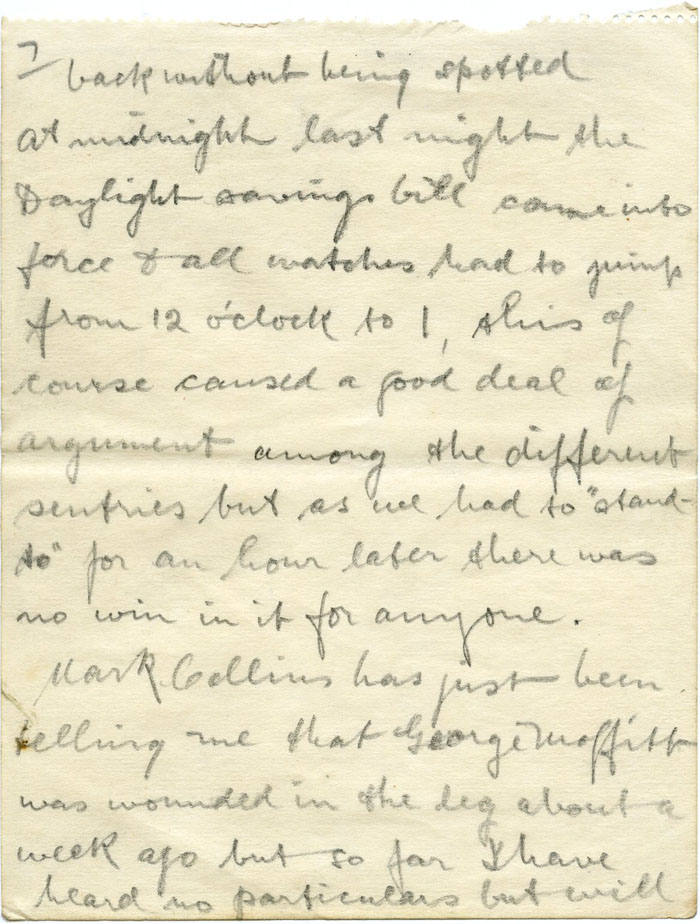 7
back without being spotted
At midnight last night the
Daylight savings bill came into
force & all watches had to jump
from 12 o'clock to 1, this of
course caused a good deal of
argument among the different
sentries but as we had to "stand-
to" for an hour later there was
no win in it for anyone.
Mark Collins has just been
telling me that George Moffitt
was wounded in the leg about a
week ago but so far I have
heard no particulars but will